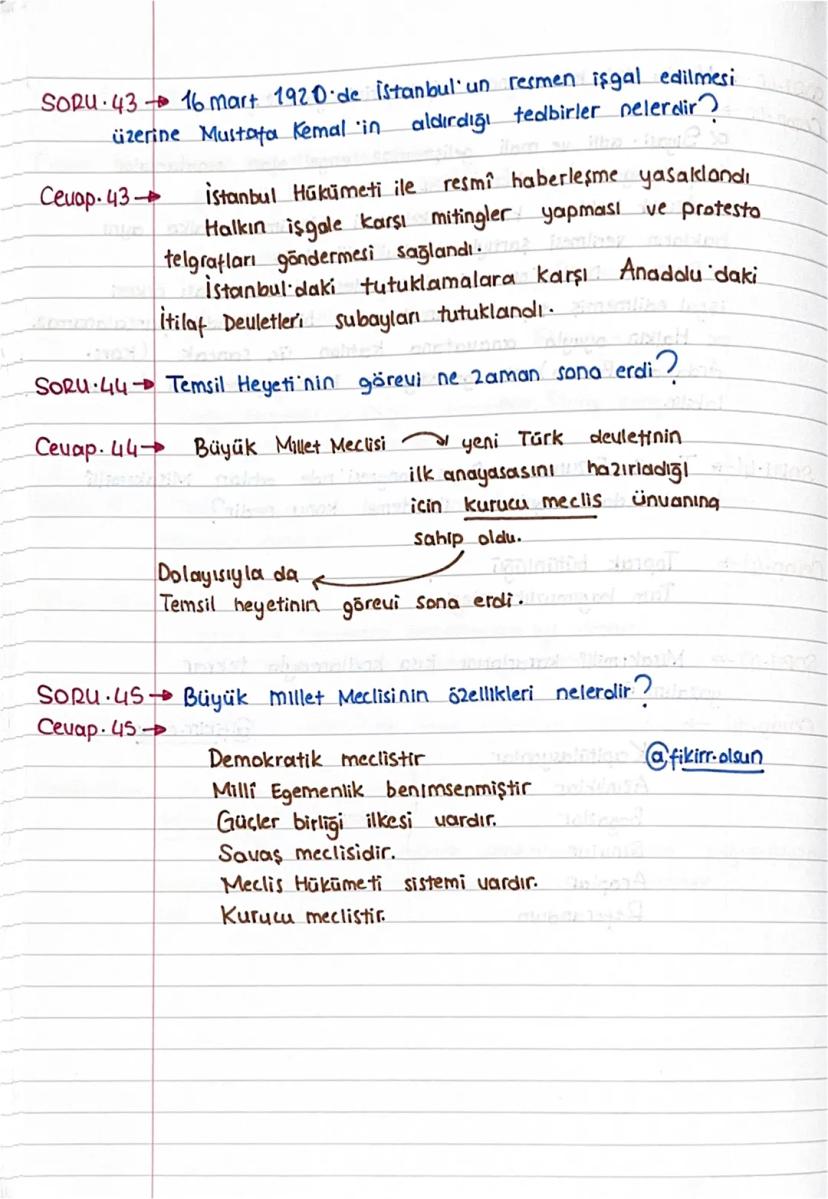 SORU.43 → 16 mart 1920'de İstanbul'un resmen işgal edilmesi
üzerine Mustafa Kemal'in aldırdığı tedbirler nelerdir?
Cevap.43 → İstanbul Hükümeti ile resmî haberleşme yasaklandı
Halkın işgale karşı mitingler yapması ve protesto
telgrafları göndermesi sağlandı.
İstanbul'daki tutuklamalara karşı Anadolu'daki
İtilaf Devletleri subayları tutuklandı.
SORU.44 → Temsil Heyeti'nin görevi ne zaman sona erdi?
Cevap.44 → Büyük Millet Meclisi → yeni Türk devletinin
ilk anayasasını hazırladığı
için kurucu meclis ünvanına
sahip oldu.
Dolayısıyla da ←
Temsil heyetinin görevi sona erdi.
SORU.45 → Büyük millet Meclisinin özellikleri nelerdir?
Cevap.45 →
Demokratik meclistir @fikirr.olsun
Millî Egemenlik benimsenmiştir
Güçler birliği ilkesi vardır.
Savaş meclisidir.
Meclis Hükümeti sistemi vardır.
Kurucu meclistir.